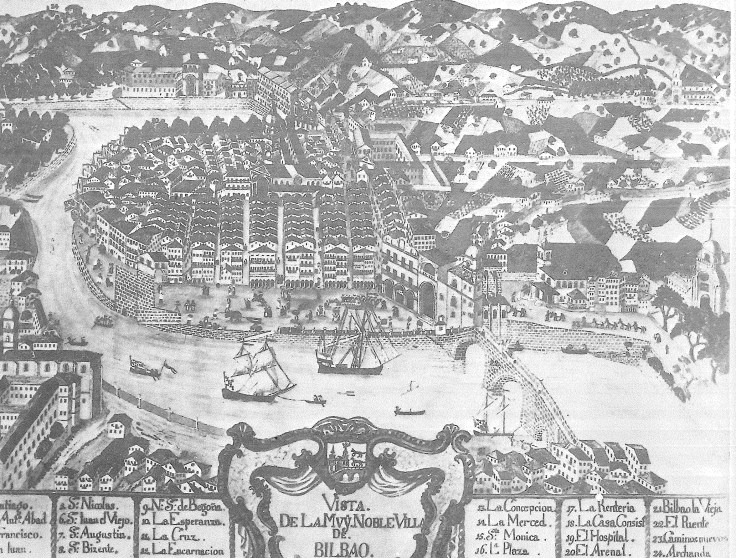 tiago.
Antº. Abad.
rancisco.
n Iuan.
5 Sⁿ. Nicolas.
6. Sⁿ. Iuan el Viejo.
7. Sⁿ. Augustin.
8. Sⁿ. Bizente.
9. N. S. de Begoña.
10 La Esperanza.
11 La Cruz.
12 La Encarnacion
VISTA.
DE LA MUY NOBLE VILLA
DE.
BILBAO.
13 La Concepcion.
14. La Merced.
15. Sᵃ. Monica.
16. lª. Plaza.
17. La Renteria
18. La Casa Consist
19. El Hospital.
20. El Arenal.
21 Bilbao la Vieja
22. El Puente
23. Caminos nuevos
24. Archanda